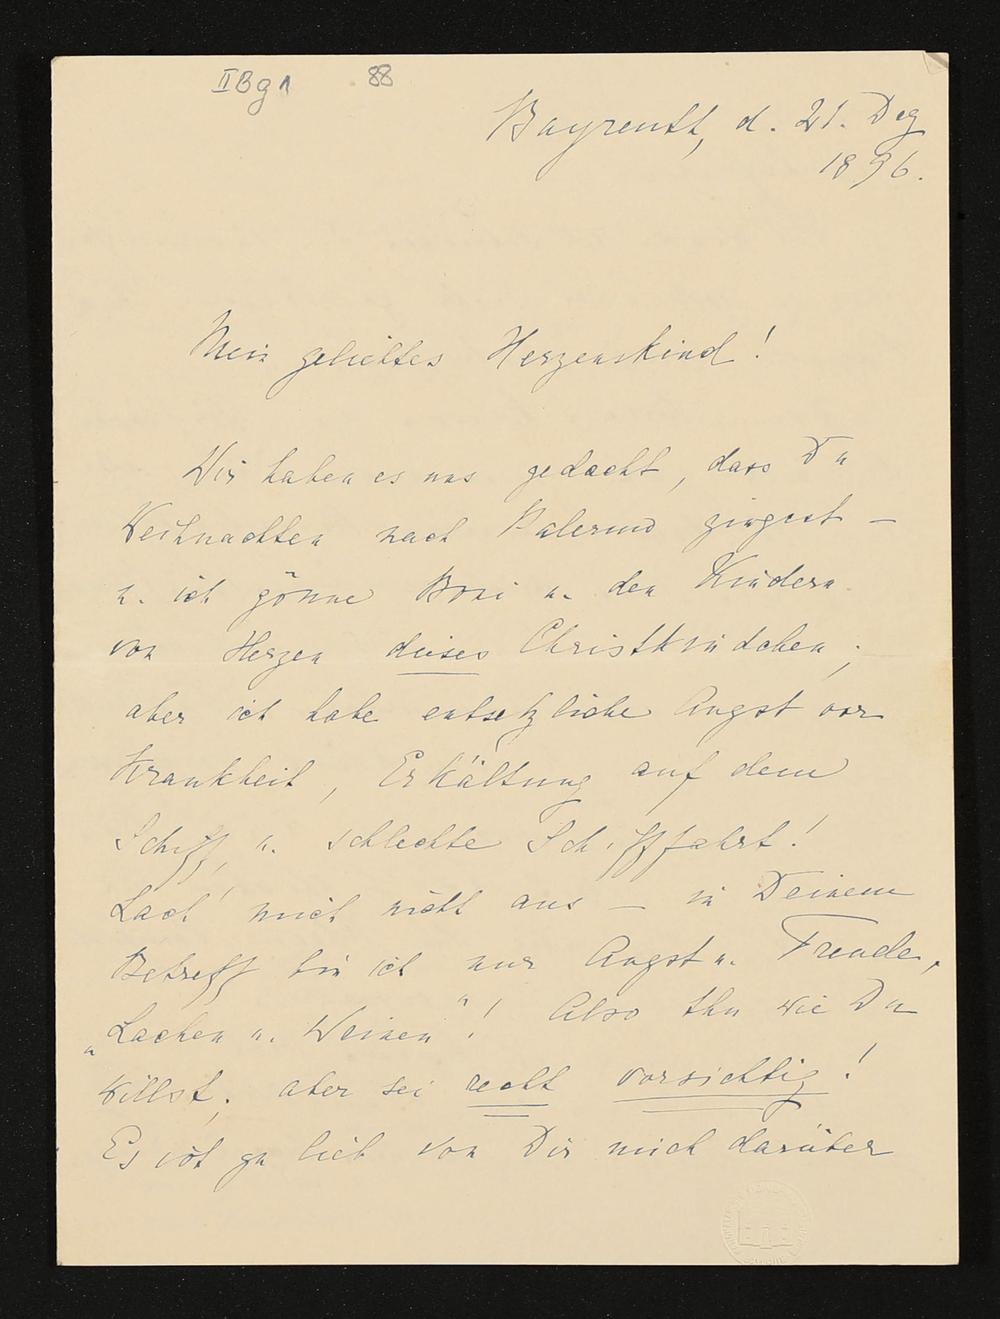 II B g 1 88
Bayreuth, d. 21. Dez
1896.
Mein geliebtes Herzenskind!
Wir haben es uns gedacht, dass Du
Weihnachten nach Palermo gingest –
u. ich gönne Boni u. den Kindern
von Herzen dieses Christkindchen;
aber ich habe entsetzliche Angst vor
Krankheit, Erkältung auf dem
Schiff, u. schlechte Schifffahrt!
Lach' mich nicht aus – in Deinem
Betreff bin ich nur Angst u. Freude,
„Lachen u. Weinen"! Also thu wie Du
willst; aber sei recht vorsichtig!
Es ist zu lieb von Dir mich darüber